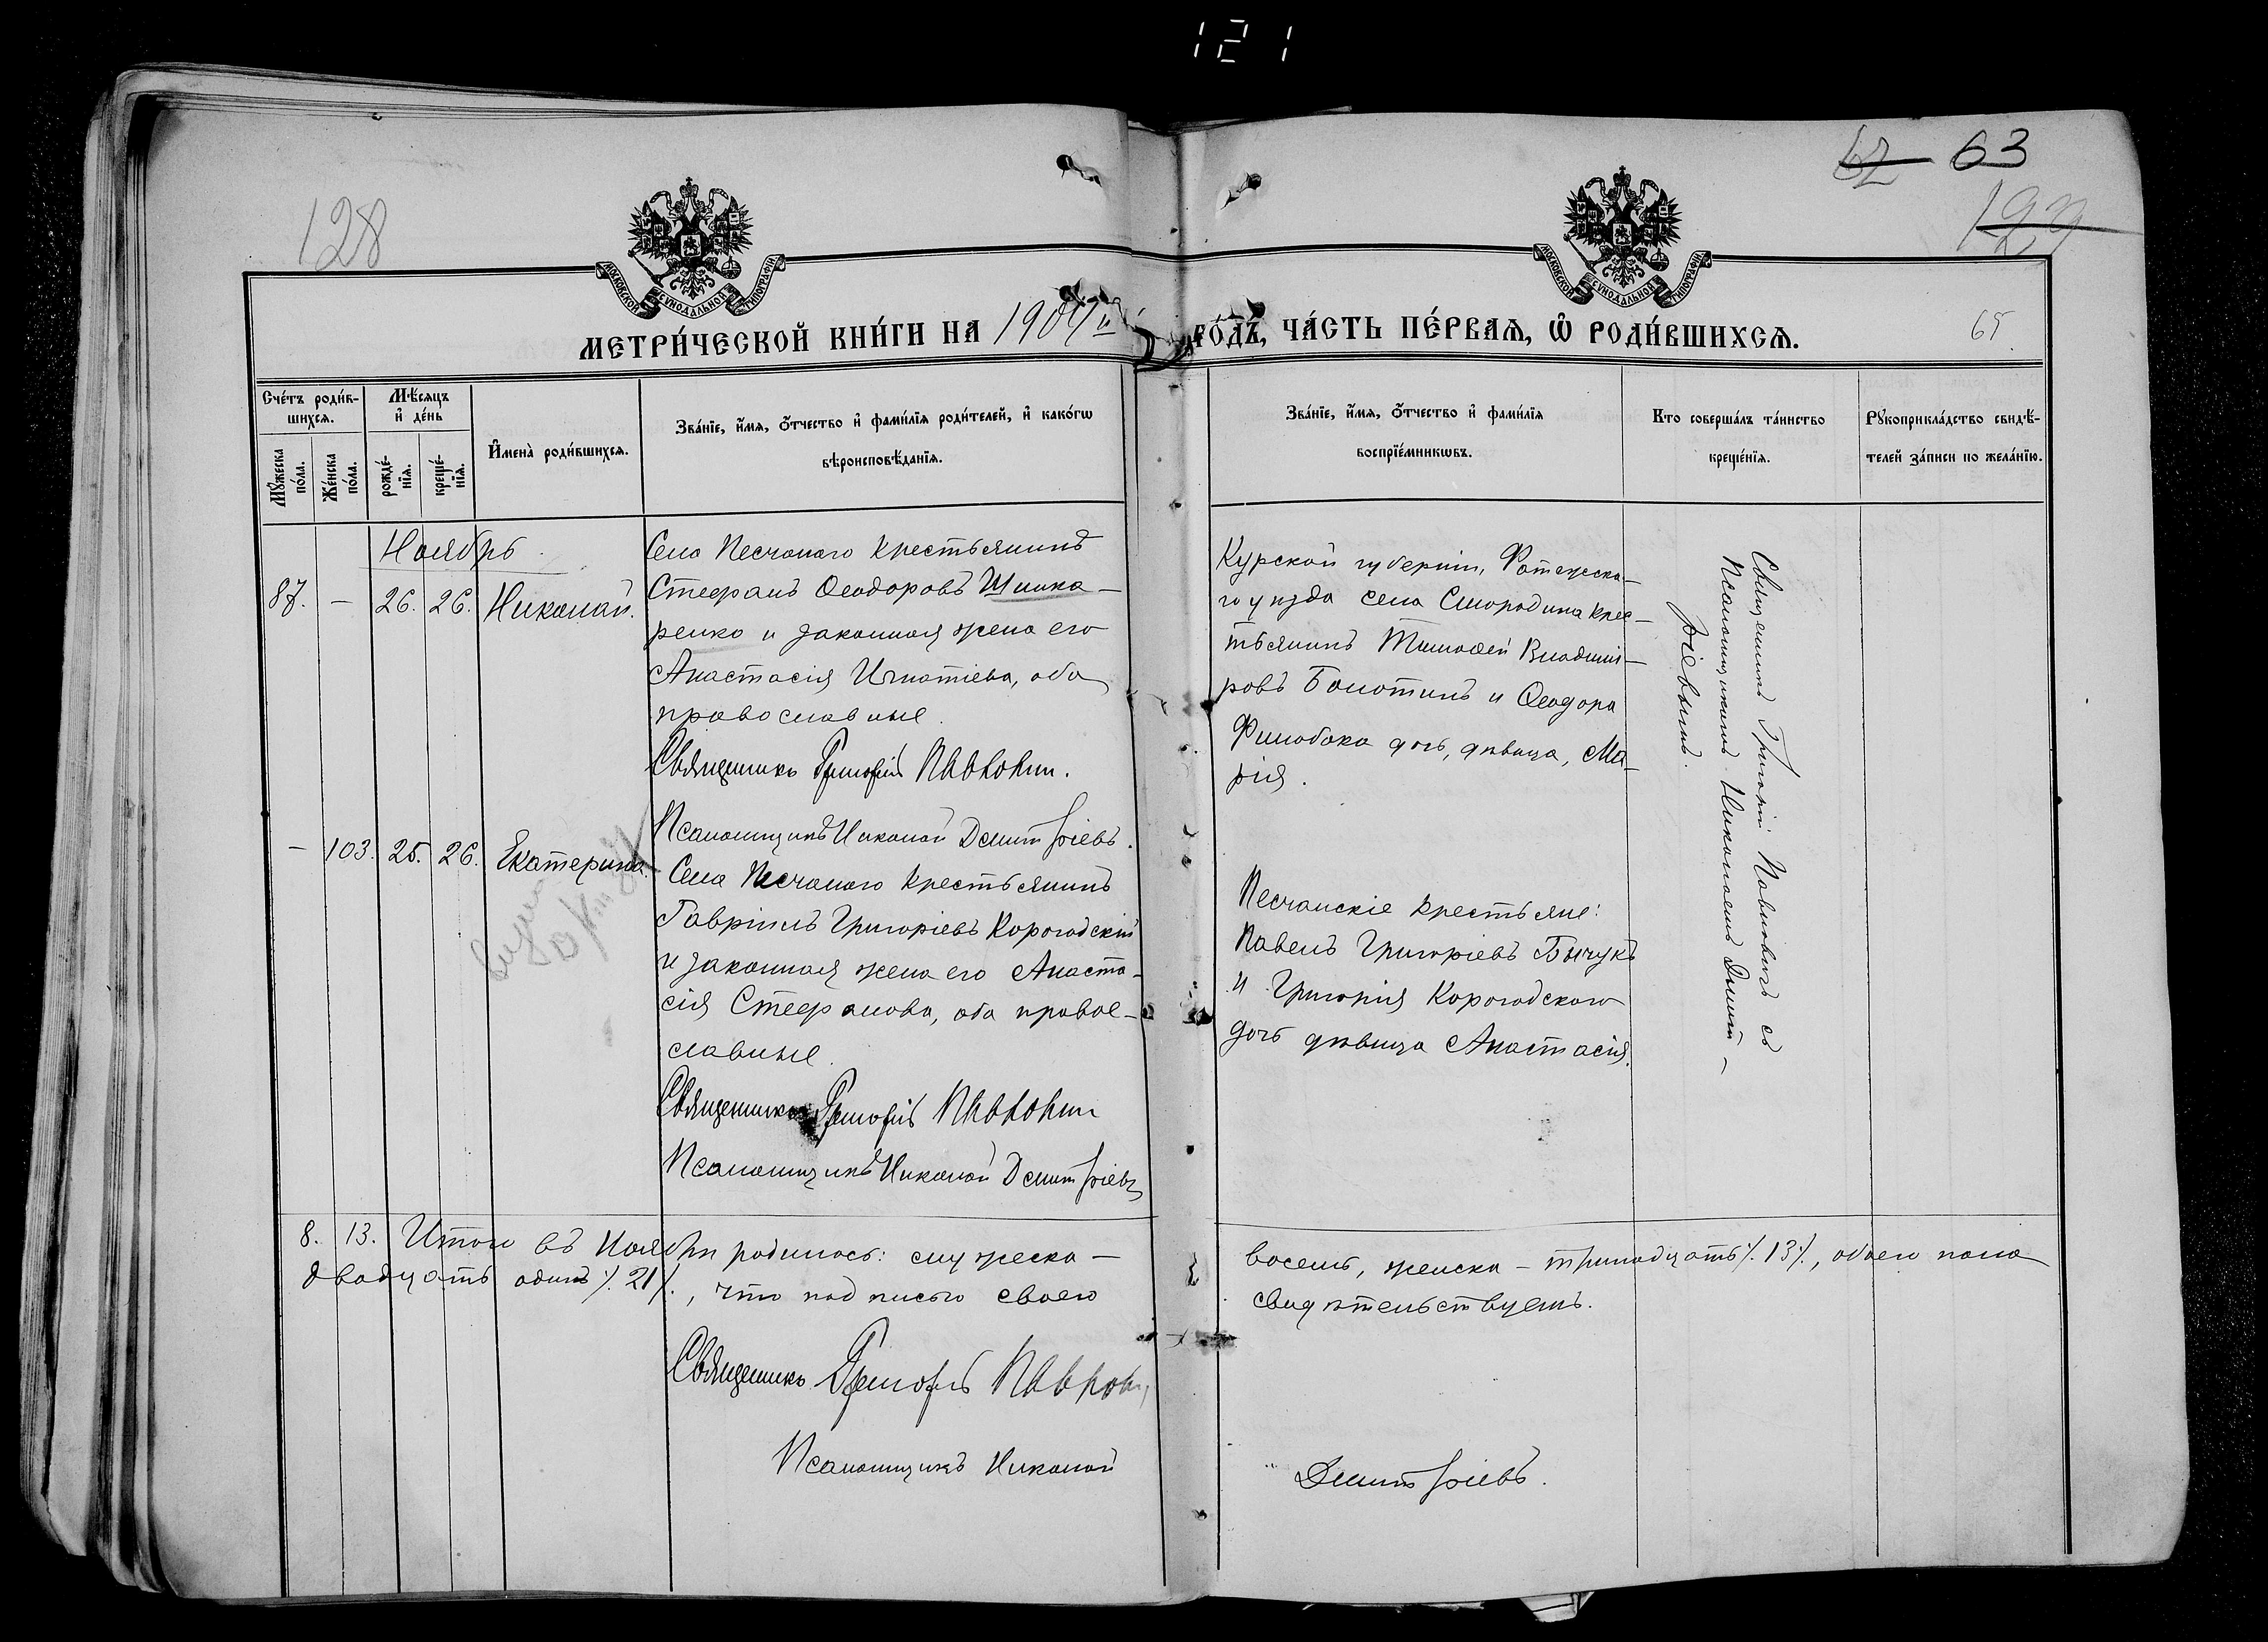 121
128
62 63
129
МОСКОВСКОЙ СѴНОДАЛЬНОЙ ТИПОГРАФІИ
МОСКОВСКОЙ СѴНОДАЛЬНОЙ ТИПОГРАФІИ
МЕТРИ́ЧЕСКОЙ КНИ́ГИ НА 1904й ГО́ДЪ, ЧА́СТЬ ПЕ́РВАѦ, Ѡ҆ РОДИ́ВШИХСѦ.
65
Сче́тъ роди́вшихсѧ.
Мꙋ́жеска по́ла.
Же́нска по́ла.
Мѣ́сѧцъ и҆ де́нь
рожде́нїѧ.
креще́нїѧ.
И҆мена̀ роди́вшихсѧ.
Зва́нїе, и҆́мѧ, ѻ҆́тчество и҆ фами́лїѧ роди́телей, и҆ како́гѡ
вѣроисповѣ́данїѧ.
Зва́нїе, и҆́мѧ, ѻ҆́тчество и҆ фами́лїѧ
воспрїе́мникѡвъ.
Кто соверша́лъ та́инство
креще́нїѧ.
Рꙋкоприкла́дство свидѣ́-
телей за́писи по жела́нїю.
Ноябрь
87. – 26. 26. Николай.
Села Песчанаго крестьянинъ
Стефанъ Ѳеодоровъ Шинка-
ренко и законная жена его
Анастасія Игнатіева, оба
православные.
Священникъ Григорій Павловичъ.
Псаломщикъ Николай Дмитріевъ.
Курской губерніи, Фатежска-
го уѣзда села Смородина крес-
тьянинъ Тимоѳей Владимі-
ровъ Болотинъ и Ѳеодора
Филобока дочь, дѣвица, Ма-
рія.
Священникъ Григорій Павловичъ съ
Псаломщикомъ Николаемъ Дмит-
ріевымъ.
– 103. 25. 26. Екатерина.
Села Песчанаго крестьянинъ
Гавріилъ Григоріевъ Корогодскій
и законная жена его Анаста-
сія Стефанова, оба право-
славные.
Священникъ Григорій Павловичъ
Псаломщикъ Николай Дмитріевъ
Песчанскіе крестьяне:
Павелъ Григоріевъ Бычукъ
и Григорія Корогодскаго
дочь дѣвица Анастасія.
8. 13. Итого въ Ноябрѣ родилось: мужеска – восемь, женска – тринадцать /. 13 /., обоего пола
двадцать одинъ /. 21 /., что подписью своею свидѣтельствуемъ.
Священникъ Григорій Павлович
Псаломщикъ Николай Дмитріевъ.